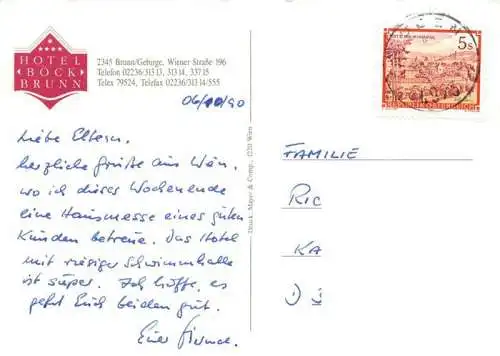 HOTEL
BÖCK
BRUNN
2345 Brunn/Gebirge, Wiener Straße 196
Telefon 02236/313 13, 313 14, 337 15
Telex 79524, Telefax 02236/313 14/555
06/10/90
Liebe Eltern,
herzliche Grüße aus Wien,
wo ich dieses Wochenende
eine Hausmesse eines guten
Kunden betreue. Das Hotel
mit riesiger Schwimmhalle
ist super. Ich hoffe, es
geht Euch beiden gut.
Euer
Druck: Mayer & Comp., 1220 Wien
5s
FAMILIE
RIC
KA